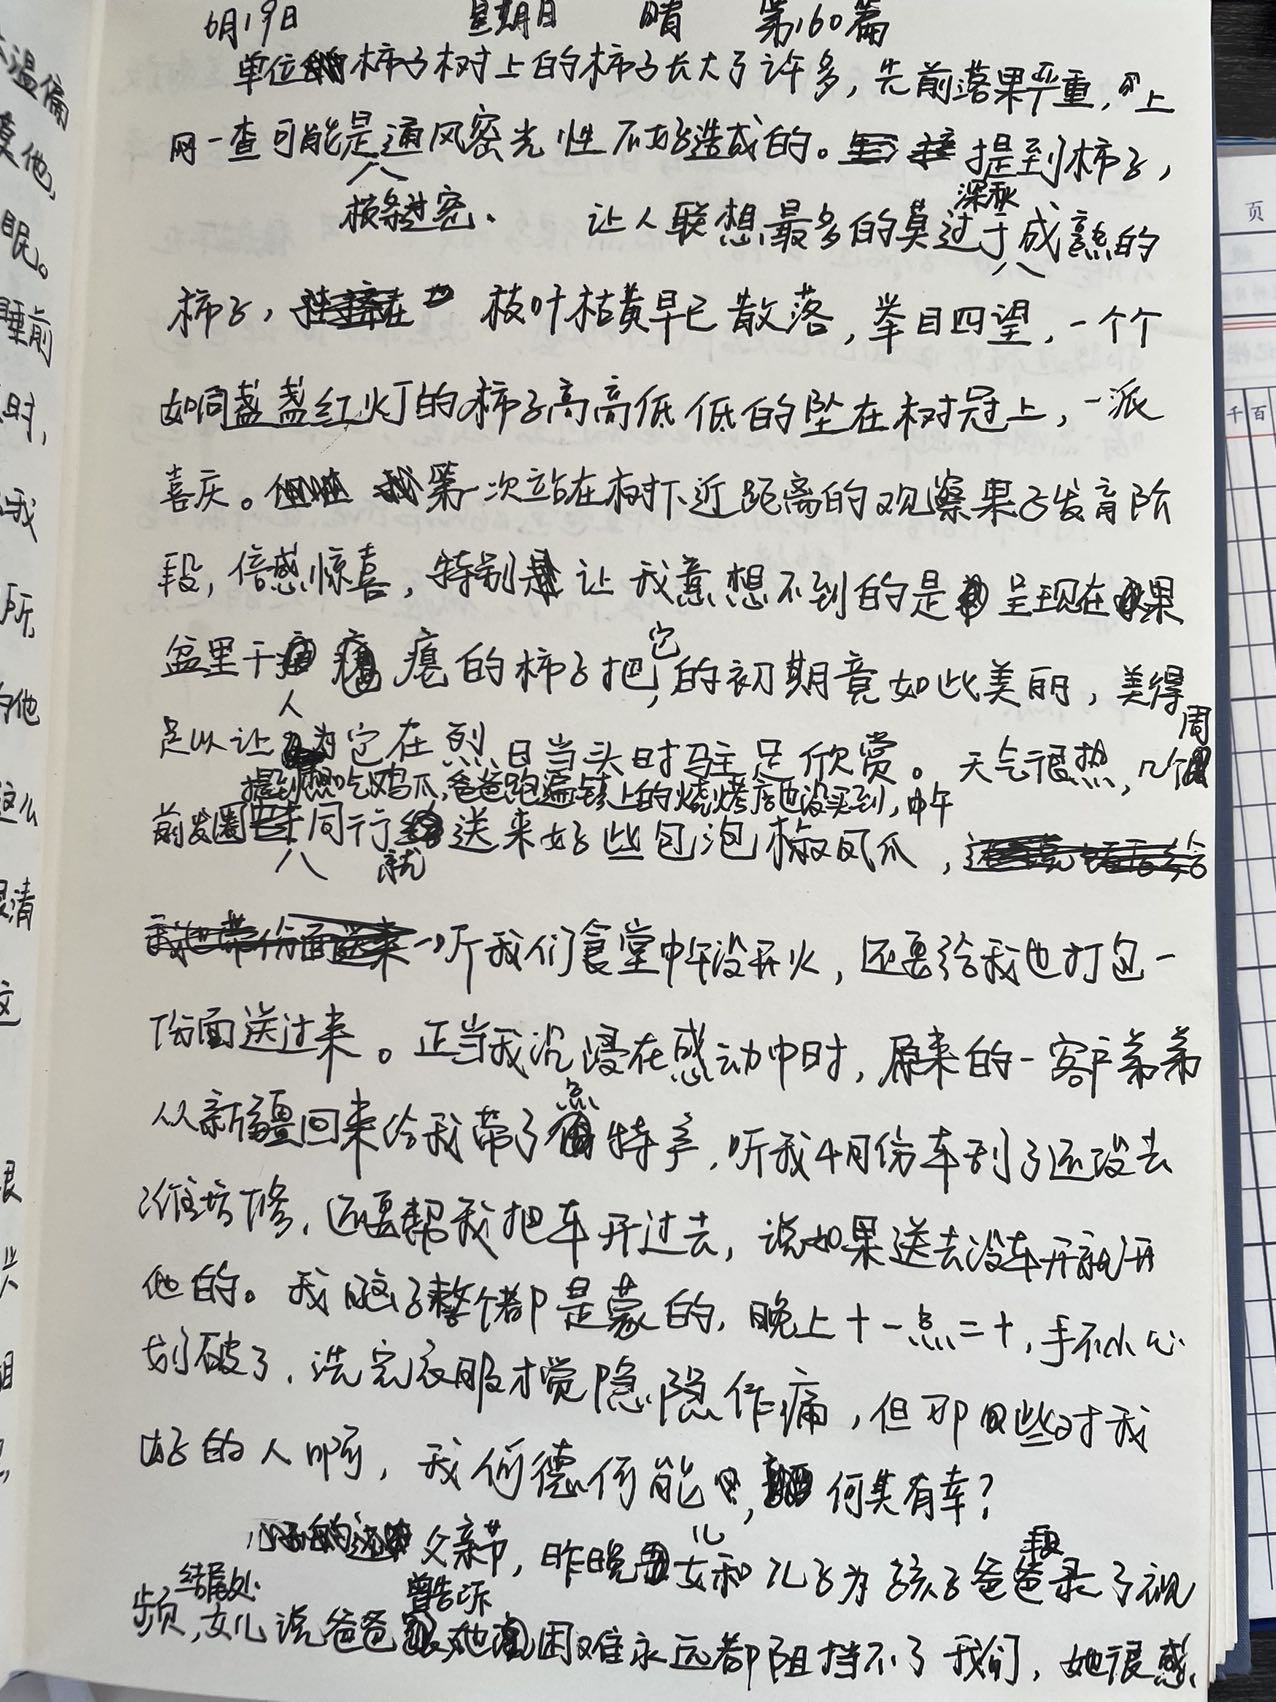 6月19日 星期日 晴 第160篇
单位柿子树上的柿子长大了许多，先前落果严重，上
网一查可能是通风透光性不好造成的。提到柿子，
枝条过密、
深秋
让人联想最多的莫过于成熟的
柿子，枝叶枯黄早已散落，举目四望，一个个
如同盏盏红灯的柿子高高低低的坠在树冠上，一派
喜庆。第一次站在树下近距离的观察果子发育阶
段，倍感惊喜，特别让我意想不到的是呈现在果
盆里干瘪的柿子把，它的初期竟如此美丽，美得
足以让人为它在烈日当头时驻足欣赏。天气很热，几个周
提到想吃鸡爪，爸爸跑遍镇上的烧烤店也没买到，中午
前发圈同行就送来好些包泡椒凤爪，
一听我们食堂中午没开火，还要给我也打包一
份面送过来。正当我沉浸在感动中时，原来的一客户弟弟
从新疆回来给我带了点特产，听我4月份车刮了还没去
潍坊修，还要帮我把车开过去，说如果送去没车开就开
他的。我脑子整个都是蒙的，晚上十一点二十，手不小心
划破了，洗完衣服才觉隐隐作痛，但那些对我
好的人啊，我何德何能，何其有幸？
父亲节，昨晚女儿和儿子为孩子爸爸录了段视
频，结尾处女儿说爸爸曾告诉她困难永远都阻挡不了我们，她很感
温偏
莫他，
眼。
睡前
时，
我
所，
他
这么
很清
这
页
千 百